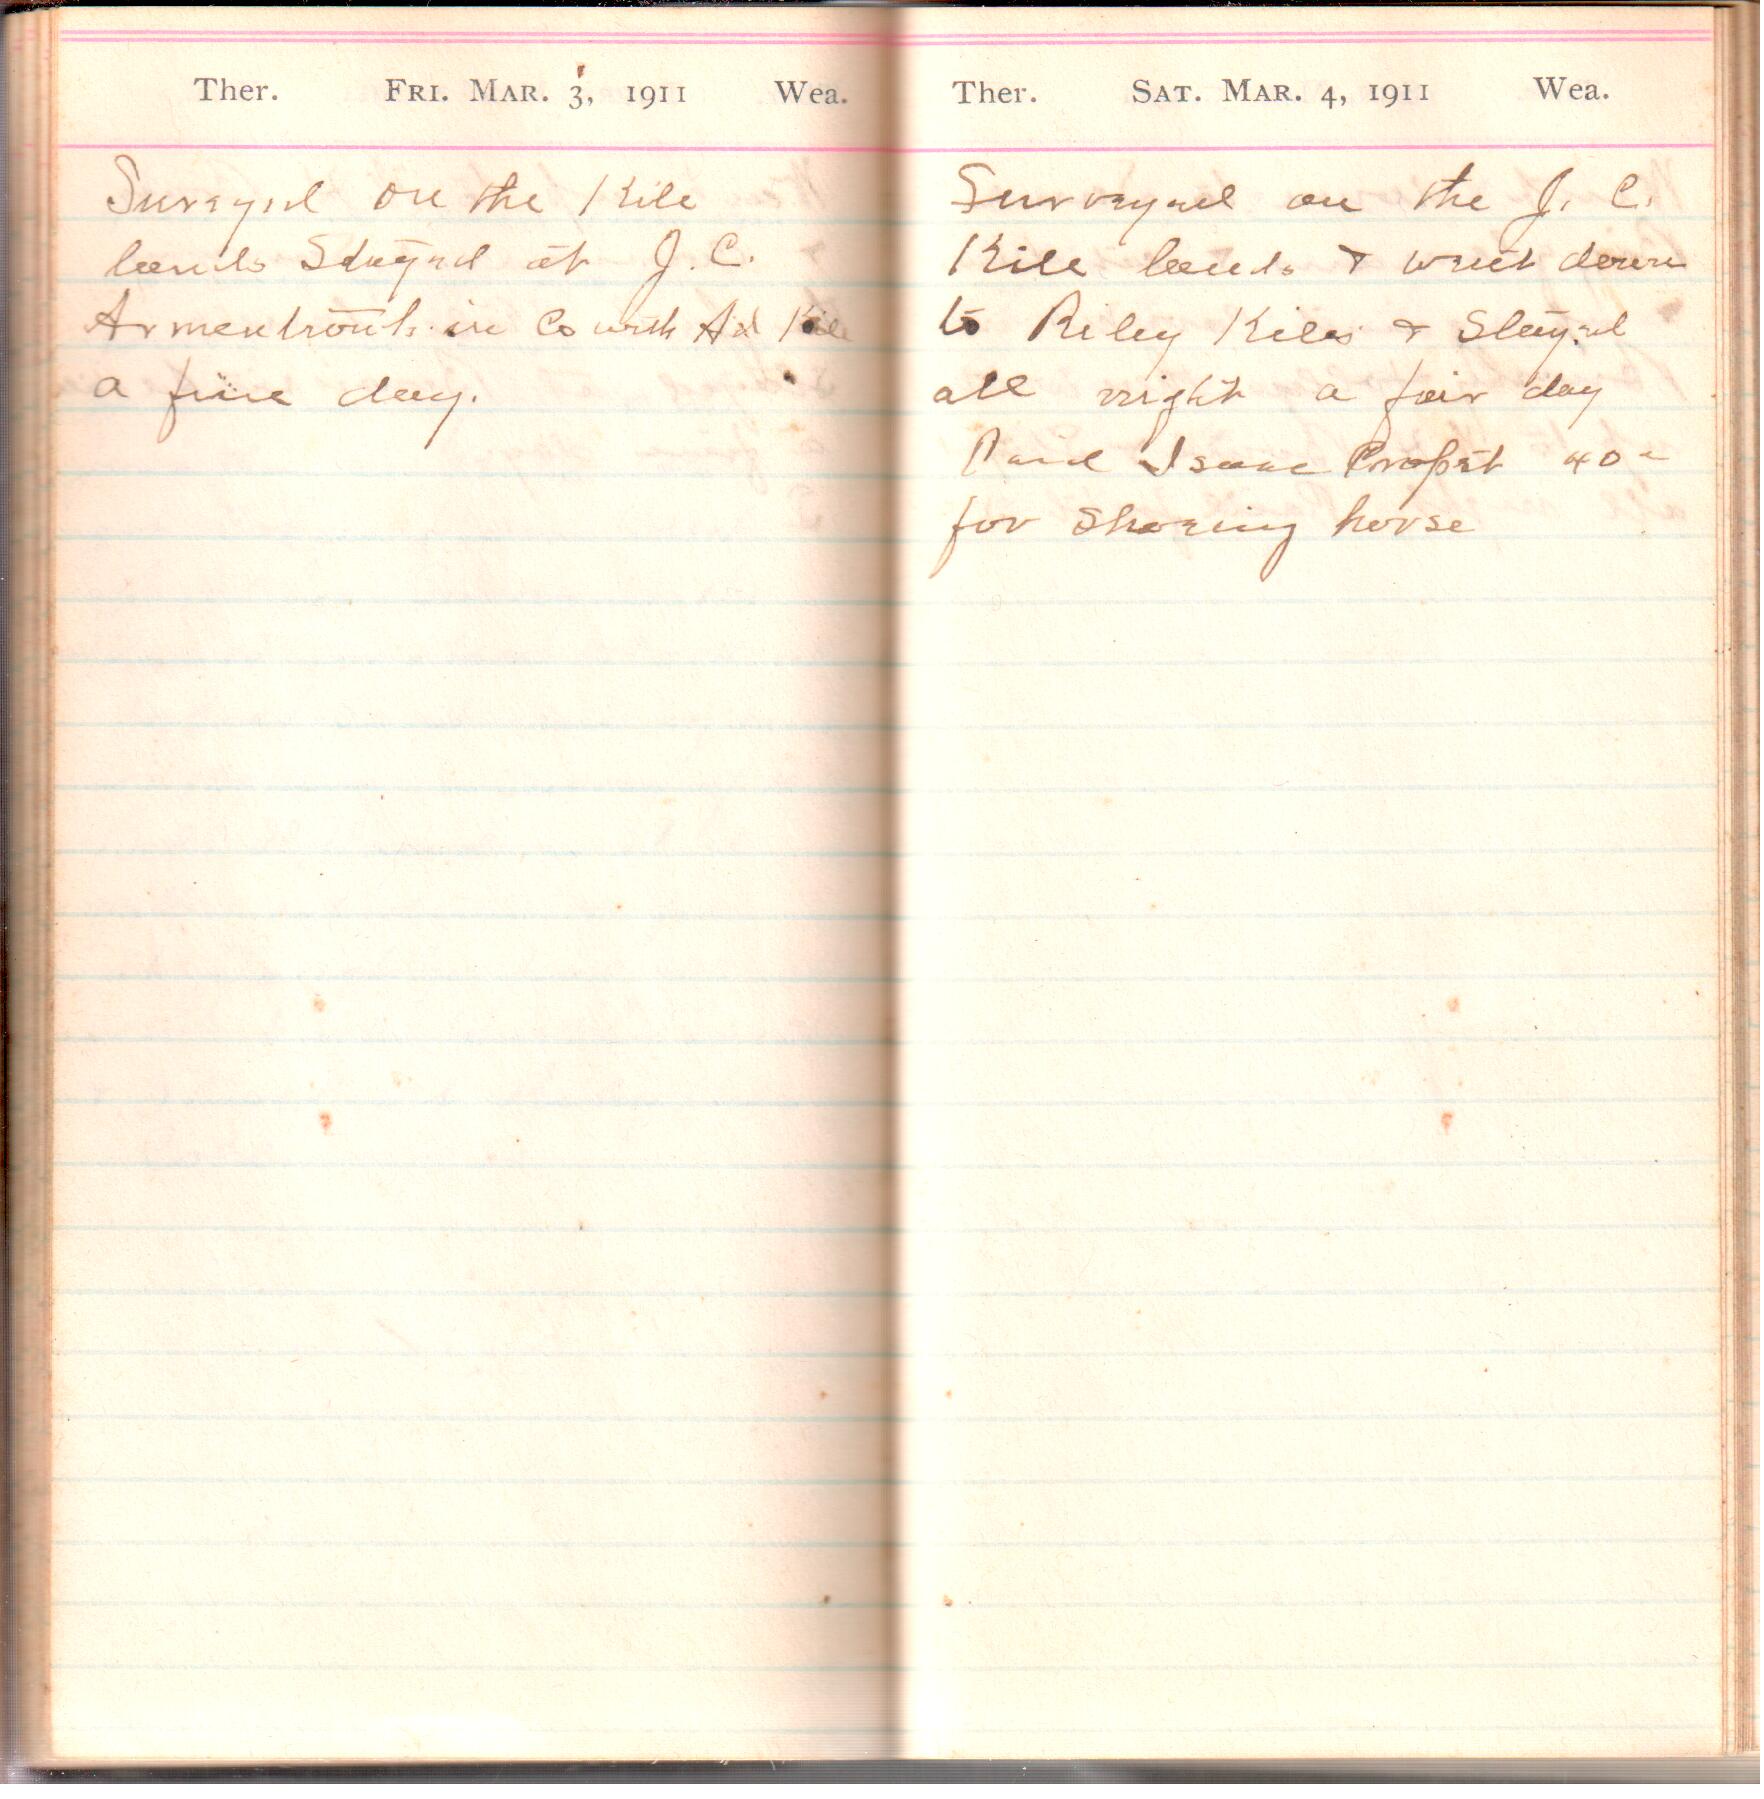 Ther. FRI. MAR. 3, 1911 Wea.
Surveyed on the Kile
lands Stayed at J. C.
Armentrouts in Co with Ad Kile
a fine day.
Ther. SAT. MAR. 4, 1911 Wea.
Surveyed on the J. C.
Kile lands & went down
to Riley Kiles & Stayed
all night a fair day
Paid Isaac Propst 40 c
for Shoeing horse